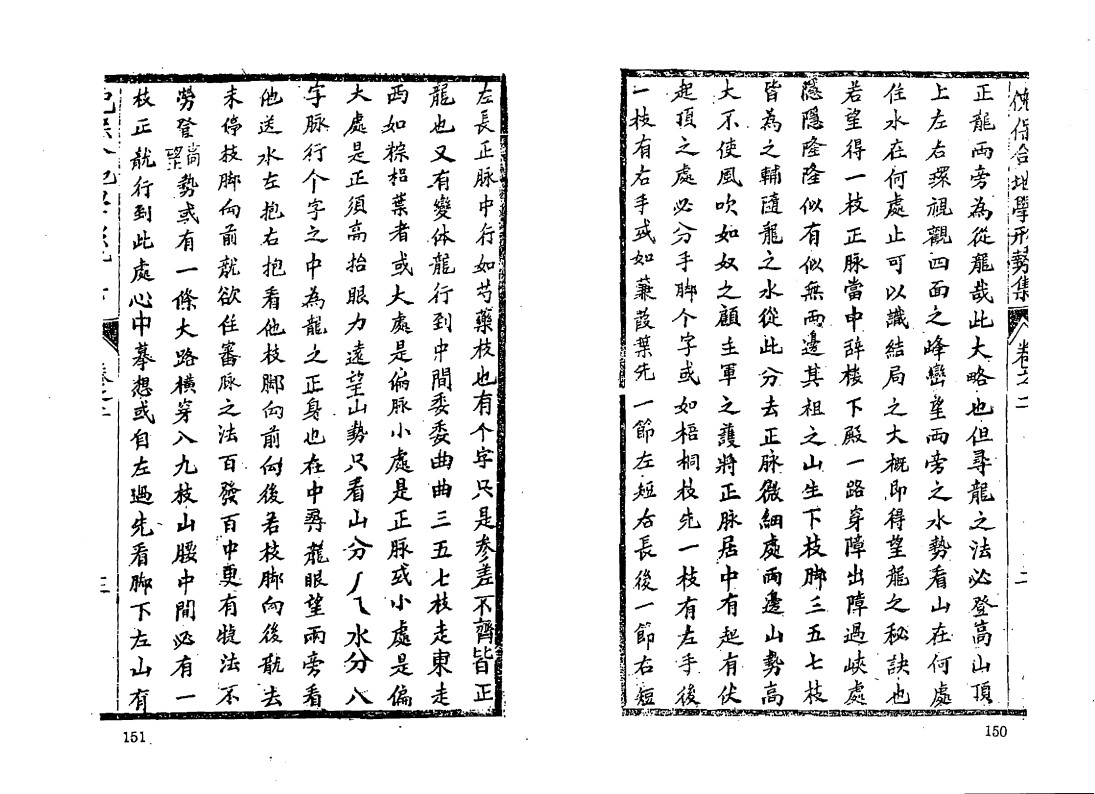 倪保合地學形勢集 卷之二 二
正龍兩旁為從龍哉此大略也但尋龍之法必登高山頂
上左右環視觀四面之峰巒望兩旁之水勢看山在何處
住水在何處止可以識結局之大概即得望龍之秘訣也
若望得一枝正脉當中辞楼下殿一路穿障出障過峽處
隱隱隆隆似有似無兩邊其祖之山生下枝脚三五七枝
皆為之輔隨龍之水從此分去正脉微細處兩邊山勢高
大不使風吹如奴之顧主軍之護將正脉居中有起有伏
起頂之處必分手脚个字或如梧桐枝先一枝有左手後
一枝有右手或如蒹葭葉先一節左短右長後一節右短
150
左長正脉中行如芍藥枝也有个字只是参差不齊皆正
龍也又有變体龍行到中間委委曲曲三五七枝走東走
西如棕梠葉者或大處是偏脉小處是正脉或小處是偏
大處是正須高抬眼力遠望山勢只看山分丿乀水分八
字脉行个字之中為龍之正身也在中尋龍眼望兩旁看
他送水左抱右抱看他枝脚向前向後若枝脚向後龍去
未停枝脚向前龍欲住審脉之法百發百中更有捷法不
勞登高望勢或有一條大路横穿八九枝山腰中間必有一
枝正龍行到此處心中摹想或自左過先看脚下左山有
三
151